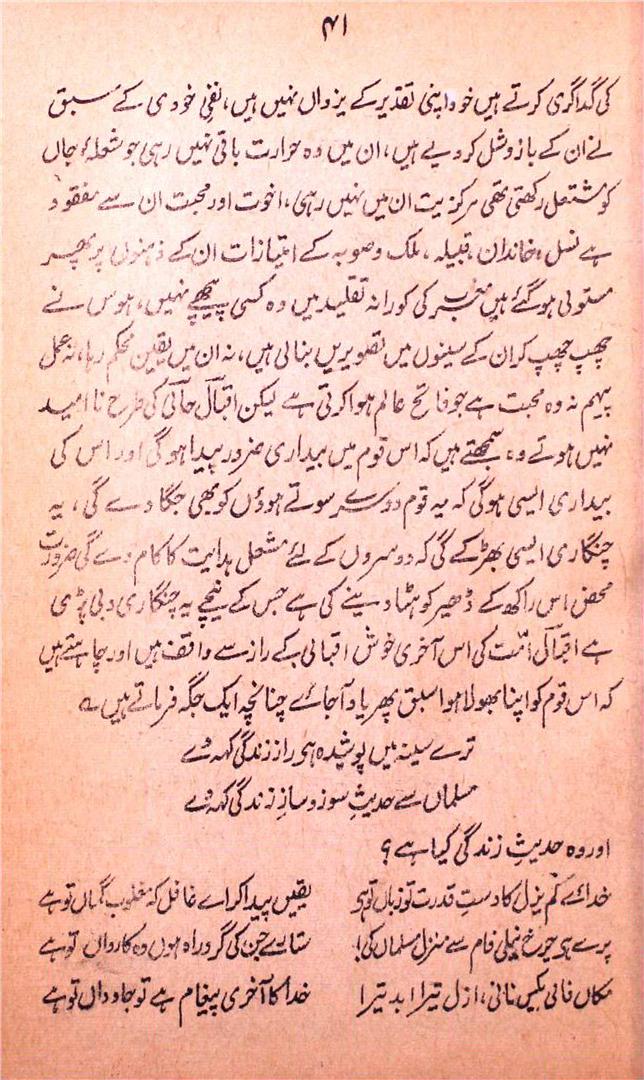 ۴۱
کی گداگری کرتے ہیں خود اپنی تقدیر کے یزداں نہیں ہیں، نفیِ خودی کے سبق
نے ان کے بازو شل کر دیے ہیں، ان میں وہ حرارت باقی نہیں رہی جو شعلۂ جاں
کو مشتعل رکھتی تھی مرکزیت ان میں نہیں رہی، اخوت اور محبت ان سے مفقود
ہے نسل، خاندان، قبیلہ، ملک وصوبہ کے امتیازات ان کے ذہنوں پر پھر
مستولی ہو گئے ہیں مغرب کی کورانہ تقلید میں وہ کسی پیچھے نہیں، ہوس نے
چھپ چھپ کر ان کے سینوں میں تصویریں بنالی ہیں، نہ ان میں یقین محکم رہا، نہ عمل
پیہم نہ وہ محبت ہے جو فاتح عالم ہوا کرتی ہے لیکن اقبال حالی کی طرح نا امید
نہیں ہوتے وہ سمجھتے ہیں کہ اس قوم میں بیداری ضرور پیدا ہوگی اور اس کی
بیداری ایسی ہوگی کہ یہ قوم دوسرے سوتے ہوؤں کو بھی جگا دے گی، یہ
چنگاری ایسی بھڑکے گی کہ دوسروں کے لئے مشعل ہدایت کا کام دے گی ضرورت
محض اس راکھ کے ڈھیر کو ہٹا دینے کی ہے جس کے نیچے یہ چنگاری دبی پڑی
ہے اقبال امّت کی اس آخری خوش اقبالی کے راز سے واقف ہیں اور چاہتے ہیں
کہ اس قوم کو اپنا بھولا ہوا سبق پھر یاد آجائے چنانچہ ایک جگہ فرماتے ہیں ؎
ترے سینہ میں پوشیدہ ہی راز زندگی کہہ دے
مسلماں سے حدیثِ سوز وسازِ زندگی کہہ دے
اور وہ حدیثِ زندگی کیا ہے؟
خدائے لم یزل کا دستِ قدرت تو زباں تو ہی یقیں پیدا کر اے غافل کہ مغلوب گماں تو ہے
پرے ہی چرخ نیلی فام سے منزل مسلماں کی! ستارے جن کی گرد راہ ہوں وہ کارواں تو ہے
مکاں فانی مکیں فانی، ازل تیرا ابد تیرا خدا کا آخری پیغام ہے تو جاوداں تو ہے